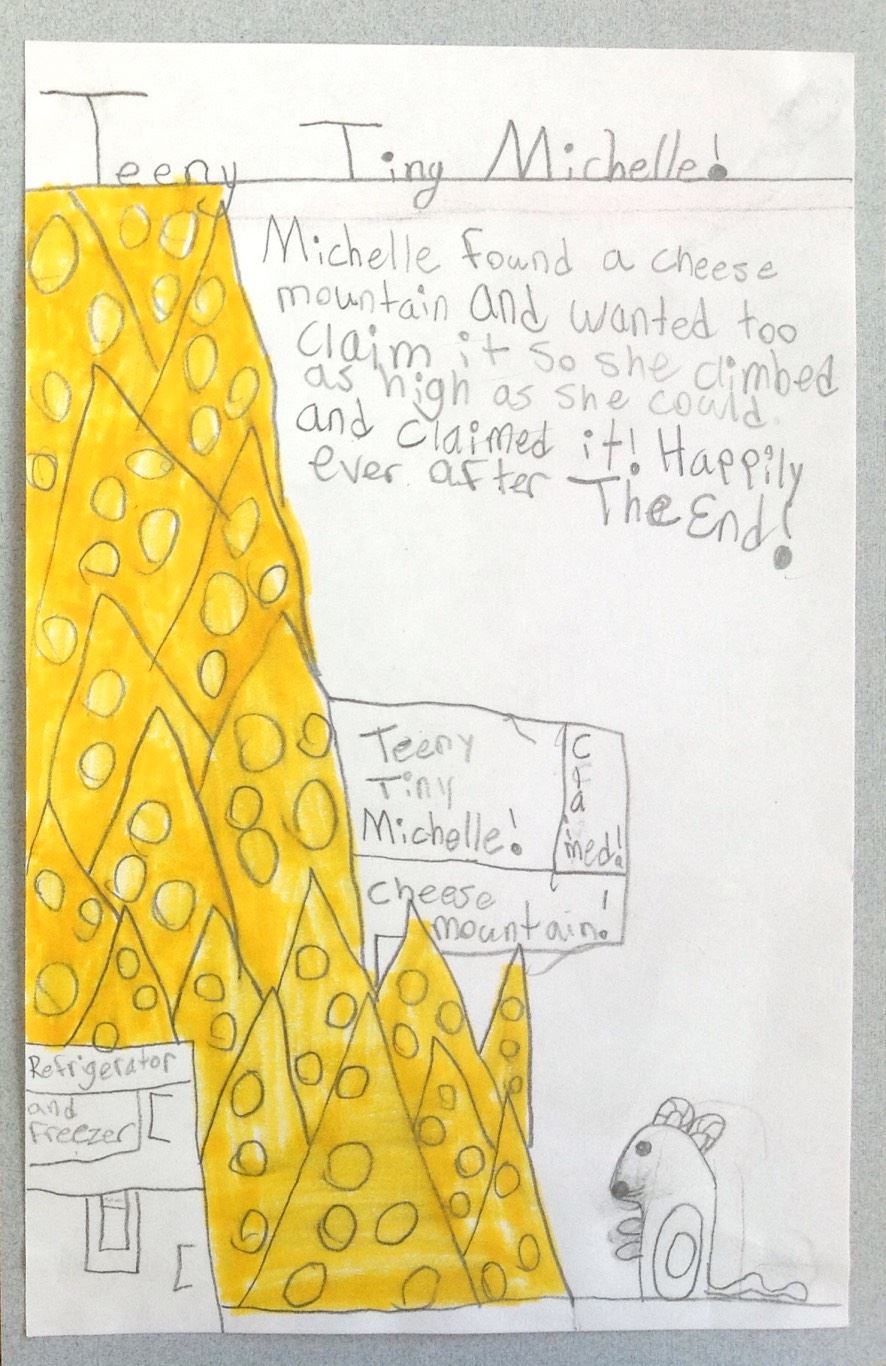 Teeny Tiny Michelle!
Michelle found a cheese
mountain and wanted too
claim it so she climbed
as high as she could.
and claimed it! Happily
ever after The End!
Teeny
Tiny
Michelle!
Claimed!
cheese
mountain!
Refrigerator
and
Freezer